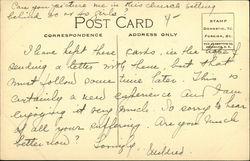 Can you picture me in this church sitting
behind
POST CARD
CORRESPONDENCE
ADDRESS ONLY
STAMP
DOMESTIC, 1C
FOREIGN, 2C
I have kept these cards, in the
sending a letter with them, but that
must follow some time later. This is
certainly a new experience and I am
enjoying it very much. So sorry to hear
of all your suffering. Are you much
better now? Lovingly,
Mildred.